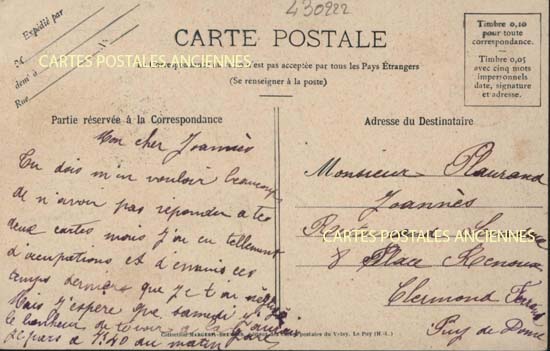 430922
CARTE POSTALE
Expédié par
M
CARTES POSTALES ANCIENNES
demt à
Rue
n'est pas acceptée par tous les Pays Étrangers
(Se renseigner à la poste)
Timbre 0,10
pour toute
correspondance.
Timbre 0,05
avec cinq mots
impersonnels
date, signature
et adresse.
Partie réservée à la Correspondance
Mon cher Joannès
Tu dois m'en vouloir beaucoup
de n'avoir pas répondu a tes
deux cartes mais j'ai eu tellement
d'ocupations et d'ennuis ces
temps derniers que je t'ai
Mais j'espère que samedi
le bonheur de te voir a la
Je pars a 7h40 du matin
Adresse du Destinataire
Monsieur Plaurand
Joannès
CARTES POSTALES ANCIENNES
8 Place Renoux
Clermond Ferrand
Puy de Dôme
du Velay, Le Puy (H.-L.)